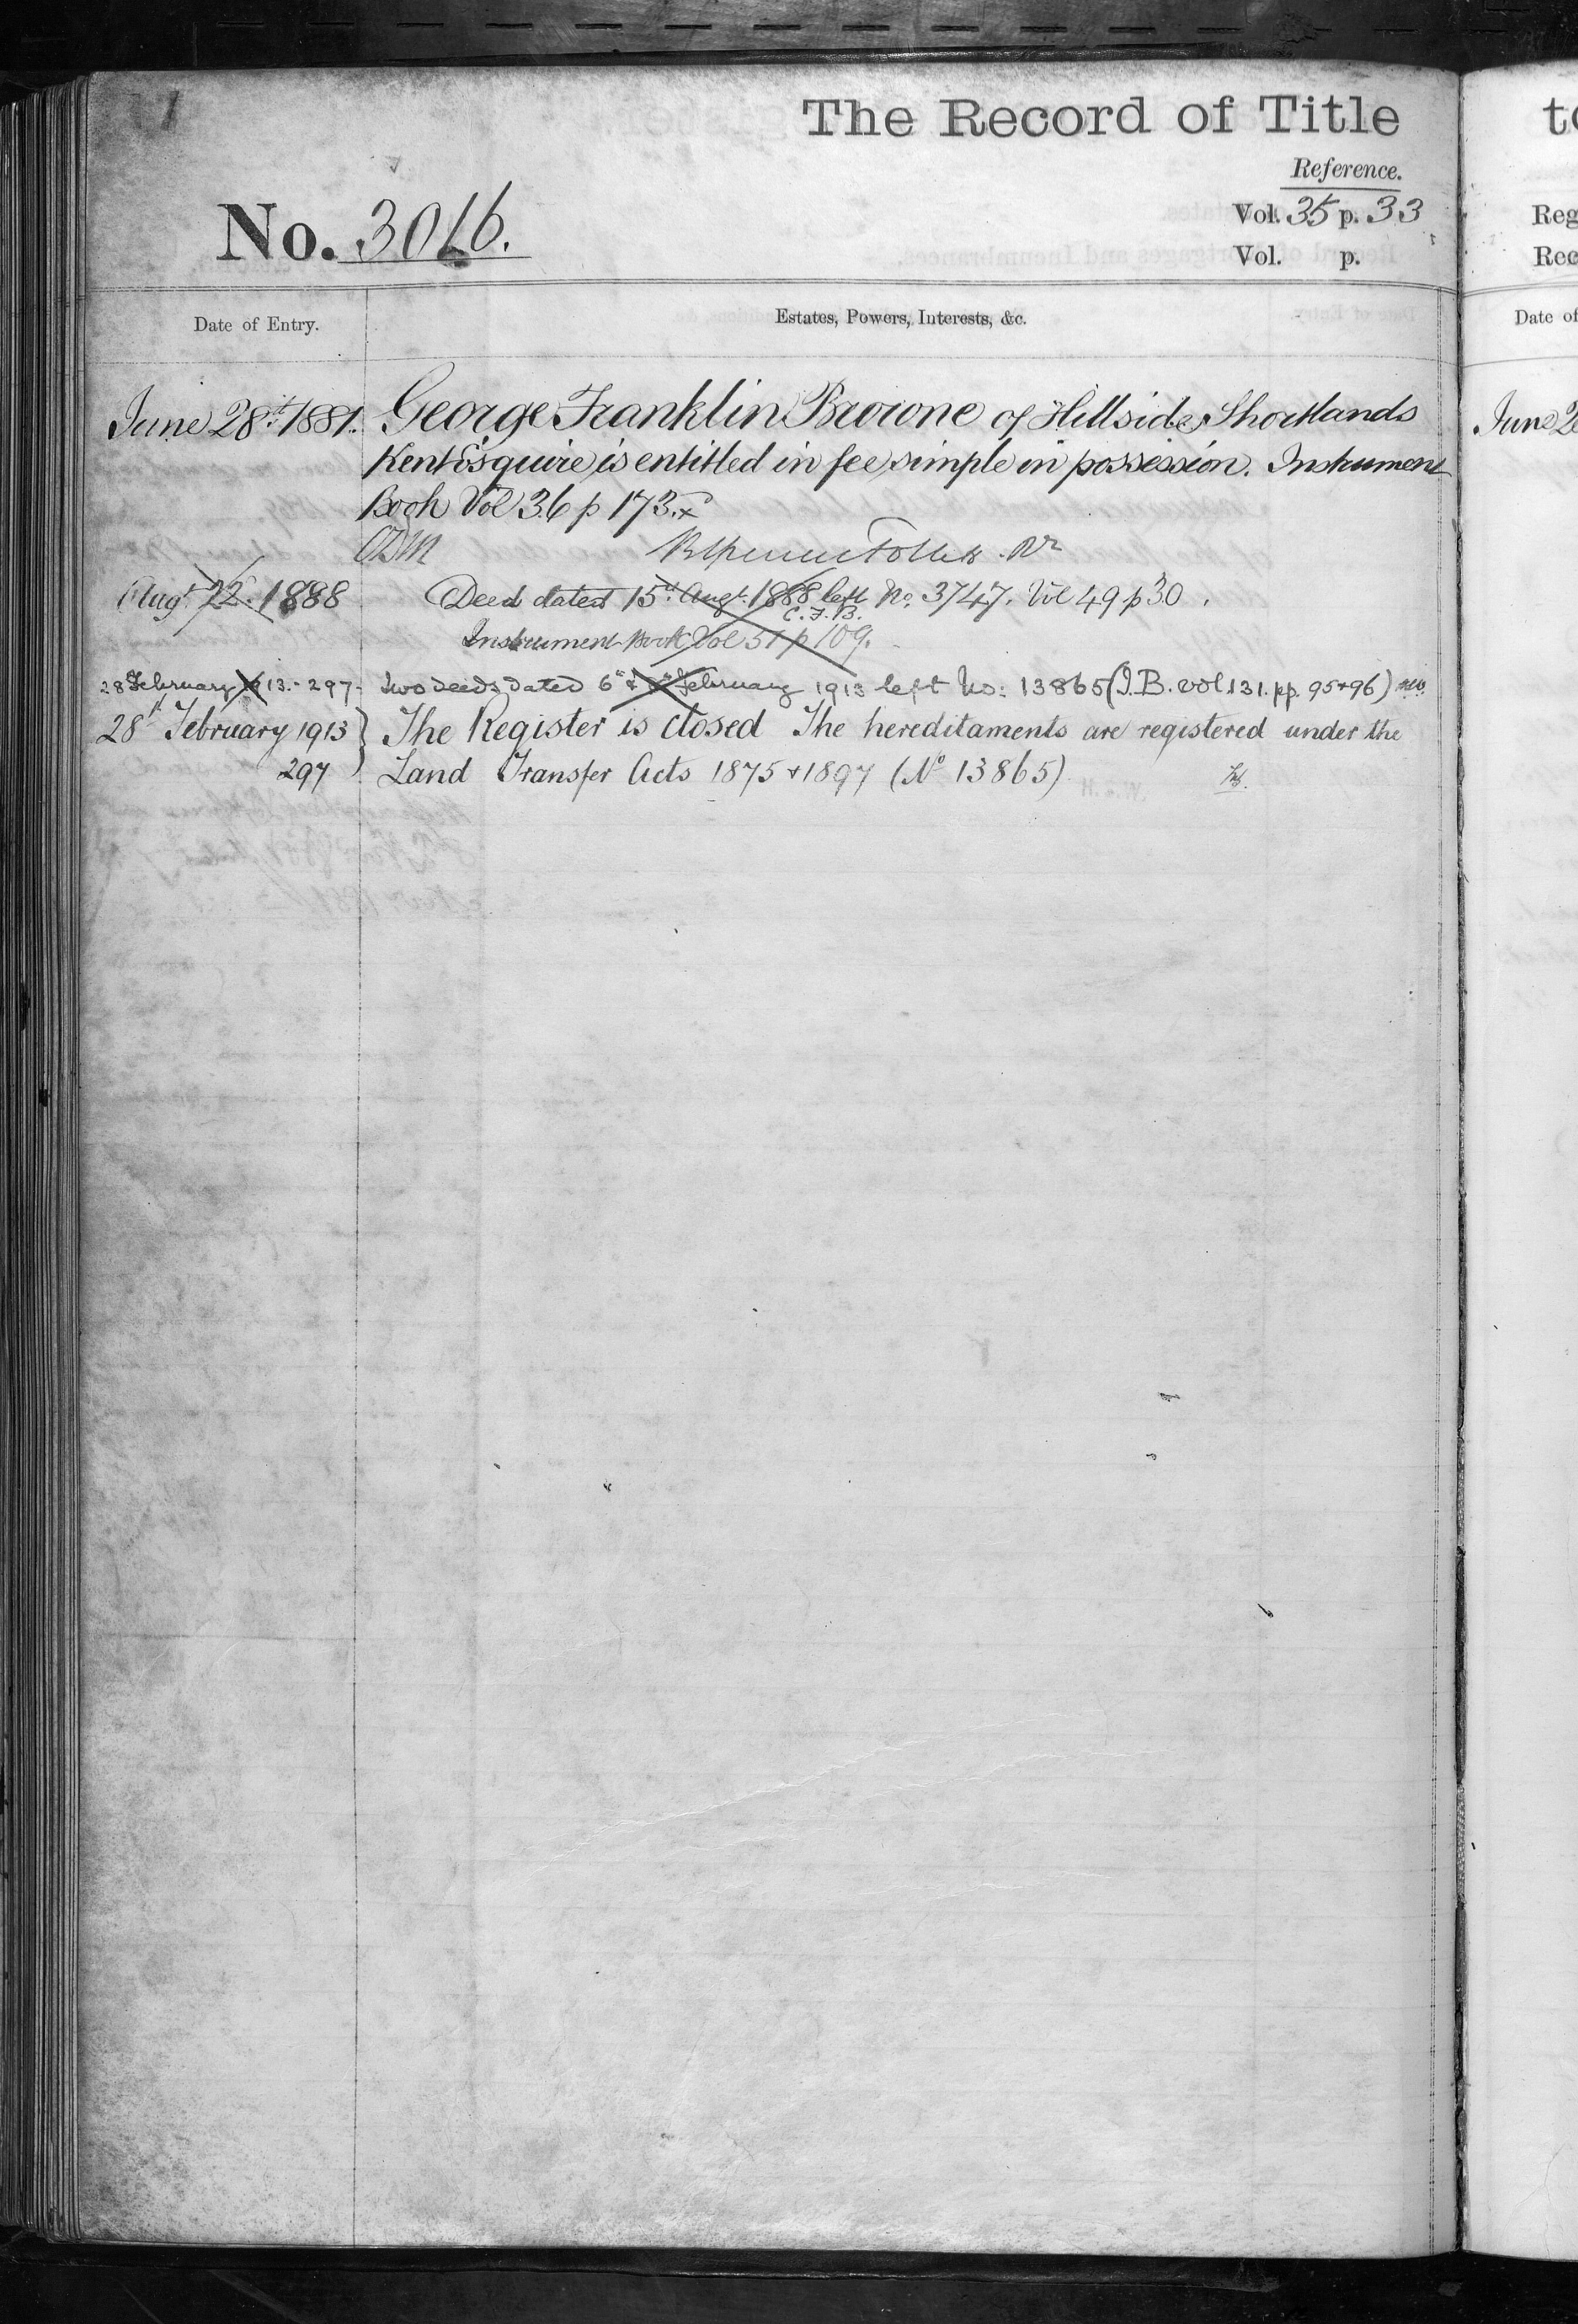 The Record of Title
Reference.
No. 3016.
Vol. 35 p. 33
Vol. p.
Date of Entry.
Estates, Powers, Interests, &c.
June 28th 1881. George Franklin Browne of Hillside, Shortlands
Kent Esquire is entitled in fee simple in possession. Instrument
Book Vol 36 p 173.
Augt. 22. 1888 Deed dated 15th Augt. 1888 left No. 3747. Vol 49 p 30.
C.F.B.
Instrument Book Vol 51 p 109.
28 February 13.- 297. Two deeds dated 6th & February 1913 left No: 13865 (I.B. vol 131. pp. 95+96)
28th February 1913 } The Register is closed The hereditaments are registered under the
297 Land Transfer Acts 1875 + 1897 (No 13865)
to
Reg
Rec
Date of
June 2